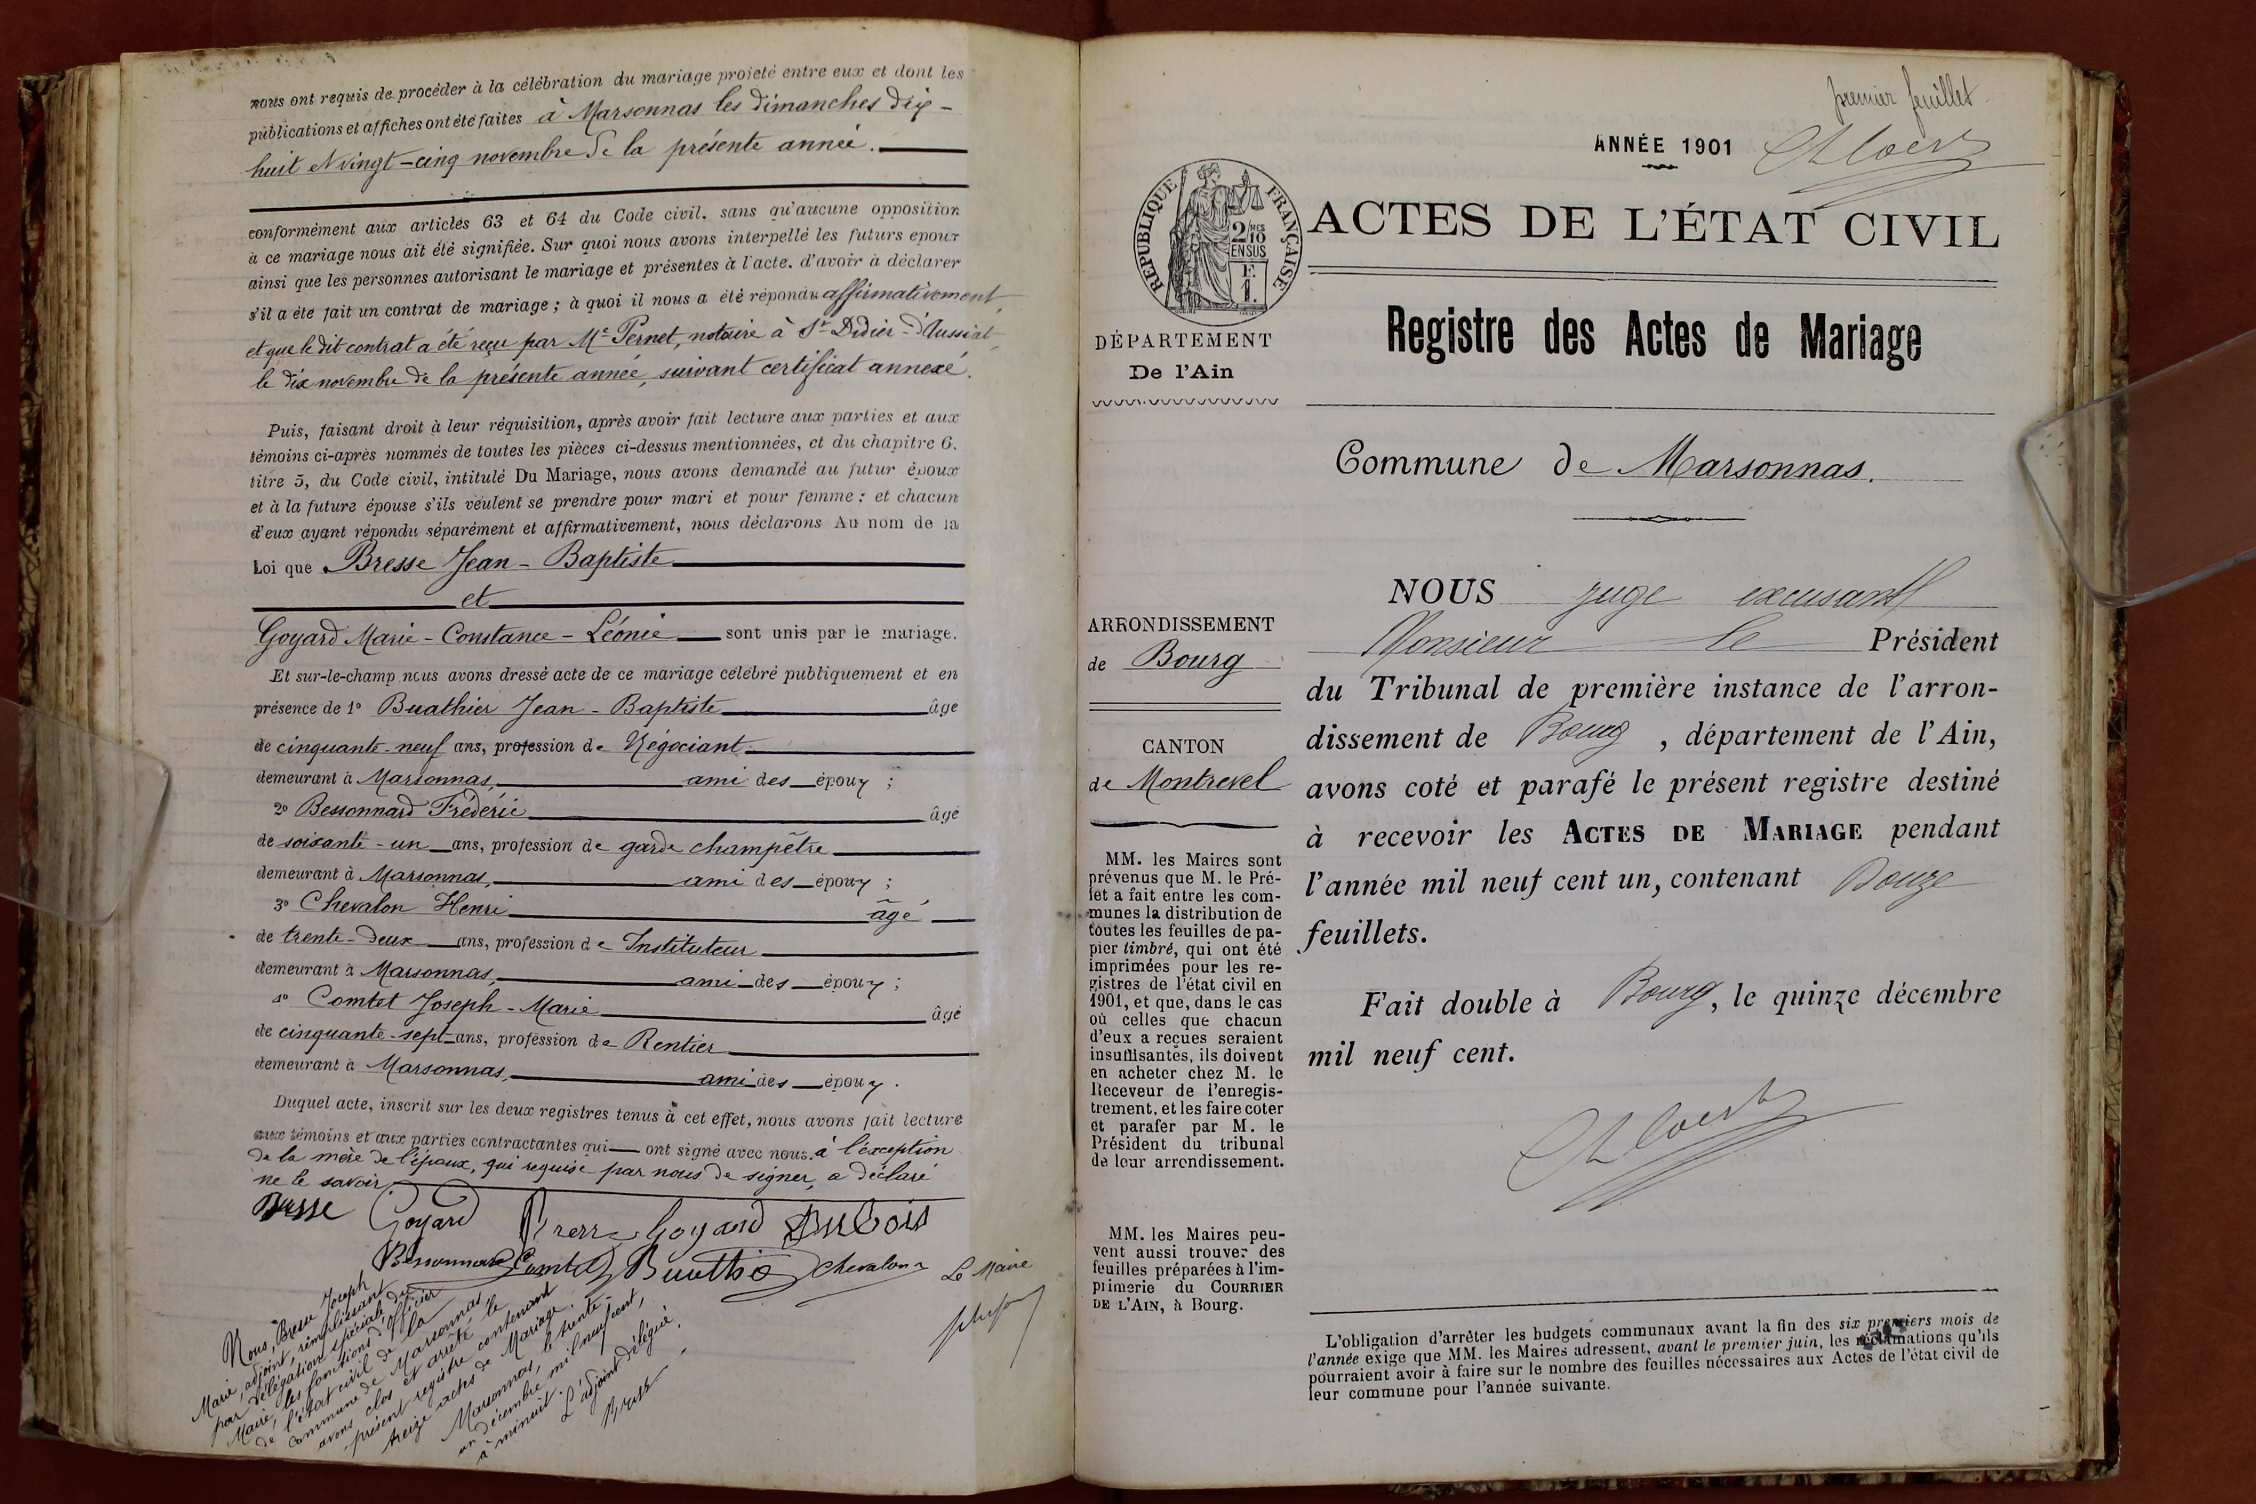 nous ont requis de procéder à la célébration du mariage projeté entre eux et dont les
publications et affiches ont été faites à Marsonnas les dimanches dix-
huit et vingt-cinq novembre de la présente année.
conformément aux articles 63 et 64 du Code civil, sans qu'aucune opposition
à ce mariage nous ait été signifiée. Sur quoi nous avons interpellé les futurs epoux
ainsi que les personnes autorisant le mariage et présentes à l'acte, d'avoir à déclarer
s'il a été fait un contrat de mariage ; à quoi il nous a été répondu affirmativement,
et que le dit contrat a été reçu par Me Pernet, notaire à St Didier-d'Aussiat,
le dix novembre de la présente année, suivant certificat annexé.
Puis, faisant droit à leur réquisition, après avoir fait lecture aux parties et aux
témoins ci-après nommés de toutes les pièces ci-dessus mentionnées, et du chapitre 6.
titre 5, du Code civil, intitulé Du Mariage, nous avons demandé au futur époux
et à la future épouse s'ils veulent se prendre pour mari et pour femme ; et chacun
d'eux ayant répondu séparément et affirmativement, nous déclarons Au nom de la
Loi que Bresse Jean-Baptiste
et
Goyard Marie-Constance-Léonie sont unis par le mariage.
Et sur-le-champ nous avons dressé acte de ce mariage célébré publiquement et en
présence de 1° Buathier Jean-Baptiste âgé
de cinquante-neuf ans, profession de Négociant
demeurant à Marsonnas, ami des époux ;
2° Bessonnard Frédéric âgé
de soixante-un ans, profession de garde champêtre
demeurant à Marsonnas, ami des époux ;
3° Chevalon Henri âgé
de trente-deux ans, profession de Instituteur
demeurant à Marsonnas, ami des époux ;
4° Comtet Joseph-Marie âgé
de cinquante-sept ans, profession de Rentier
demeurant à Marsonnas, ami des époux.
Duquel acte, inscrit sur les deux registres tenus à cet effet, nous avons fait lecture
aux témoins et aux parties contractantes qui ont signé avec nous, à l'exception
de la mère de l'époux, qui requise par nous de signer, a déclaré
ne le savoir.
Bresse Goyard Pierre Goyard Dubois
Bessonnard Comtet Buathier Chevalon
Le Maire
Nous, Bresse Joseph
Marie, adjoint, remplissant
par délégation spéciale du
Maire, les fonctions d'officier
de l'état civil de la
commune de Marsonnas,
avons clos et arrêté le
présent registre contenant
treize actes de Mariage.
Marsonnas, le trente-
un décembre mil neuf cent,
à minuit.
L'adjoint délégué.
Bresse
premier feuillet
ANNÉE 1901
RÉPUBLIQUE FRANÇAISE
2/10MES
EN SUS
F.
1.
ACTES DE L'ÉTAT CIVIL
DÉPARTEMENT
De l'Ain
Registre des Actes de Mariage
Commune de Marsonnas.
ARRONDISSEMENT
de Bourg
CANTON
de Montrevel
MM. les Maires sont
prévenus que M. le Pré-
fet a fait entre les com-
munes la distribution de
toutes les feuilles de pa-
pier timbré, qui ont été
imprimées pour les re-
gistres de l'état civil en
1901, et que, dans le cas
où celles que chacun
d'eux a reçues seraient
insuffisantes, ils doivent
en acheter chez M. le
Receveur de l'enregis-
trement, et les faire coter
et parafer par M. le
Président du tribunal
de leur arrondissement.
MM. les Maires peu-
vent aussi trouver des
feuilles préparées à l'im-
primerie du COURRIER
DE L'AIN, à Bourg.
NOUS juge excusant
Monsieur le Président
du Tribunal de première instance de l'arron-
dissement de Bourg, département de l'Ain,
avons coté et parafé le présent registre destiné
à recevoir les ACTES DE MARIAGE pendant
l'année mil neuf cent un, contenant Douze
feuillets.
Fait double à Bourg, le quinze décembre
mil neuf cent.
L'obligation d'arrêter les budgets communaux avant la fin des six premiers mois de
l'année exige que MM. les Maires adressent, avant le premier juin, les réclamations qu'ils
pourraient avoir à faire sur le nombre des feuilles nécessaires aux Actes de l'état civil de
leur commune pour l'année suivante.